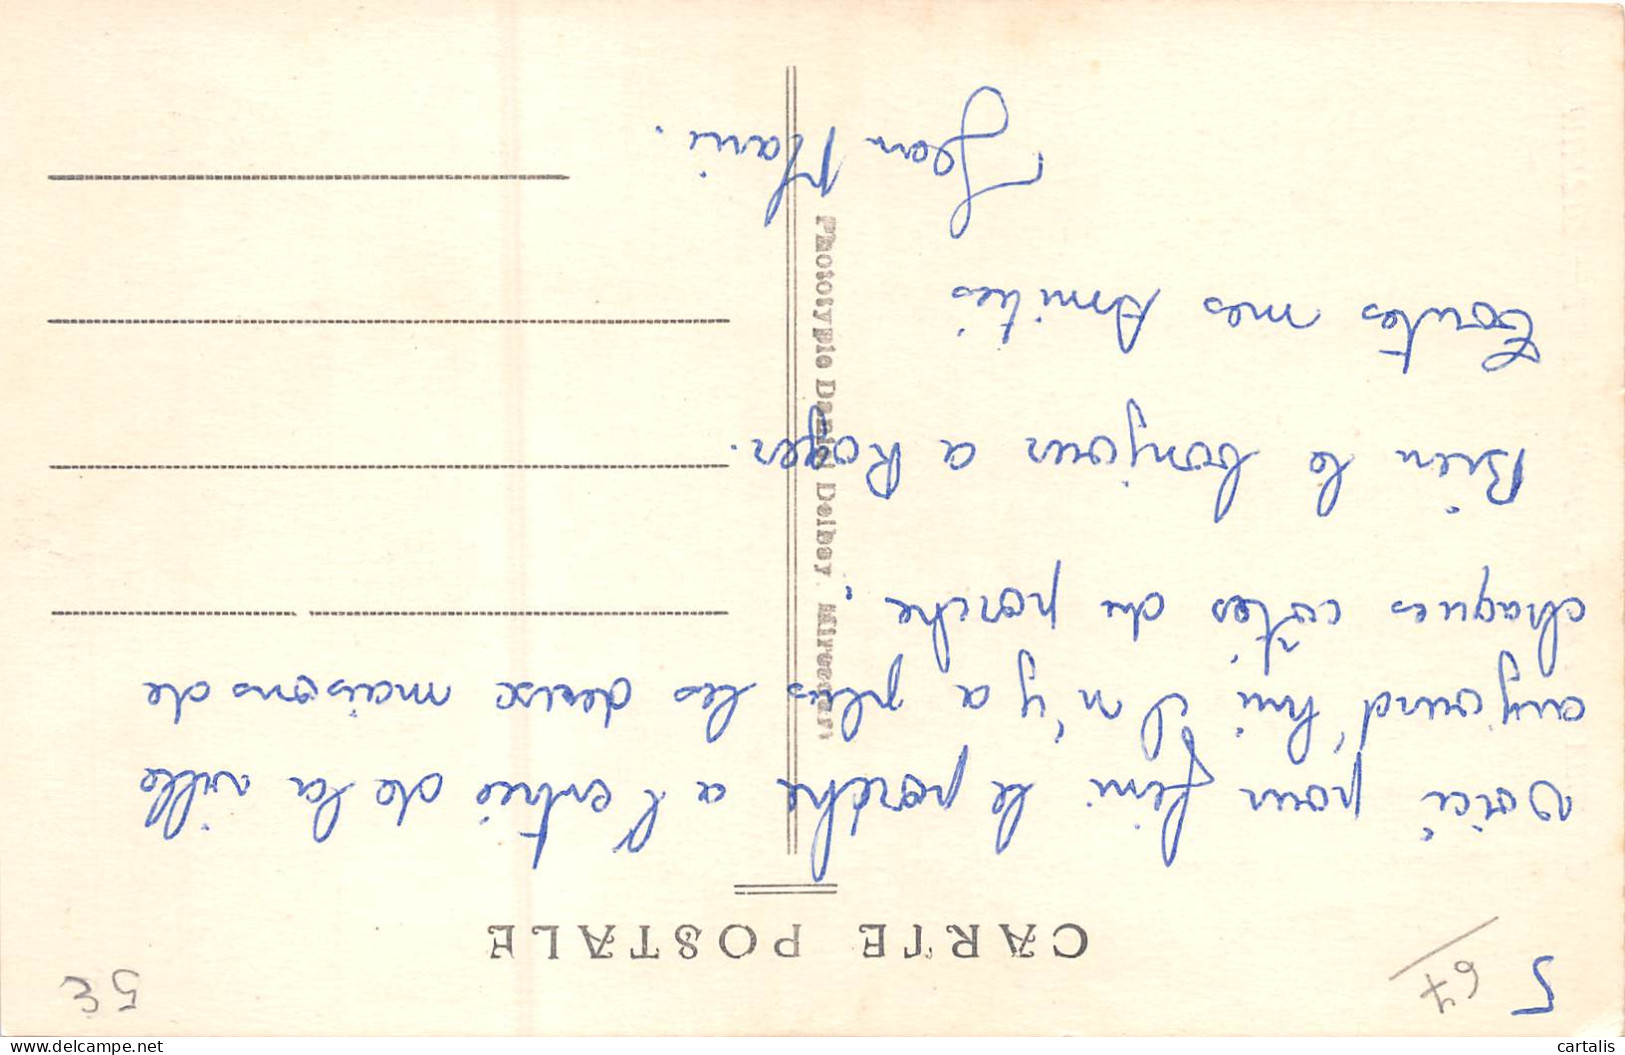 5
67
5€
CARTE POSTALE
voici pour fini le porche a l'entrée de la ville
aujourd'hui il n'y a plus les deux maisons de
chaques côtés du porche.
Bien le bonjour a Roger.
Toutes mes Amitiés
Jean Mari.
Phototypie Daniel Delboy. Mirecourt
delcampe.net
cartalis